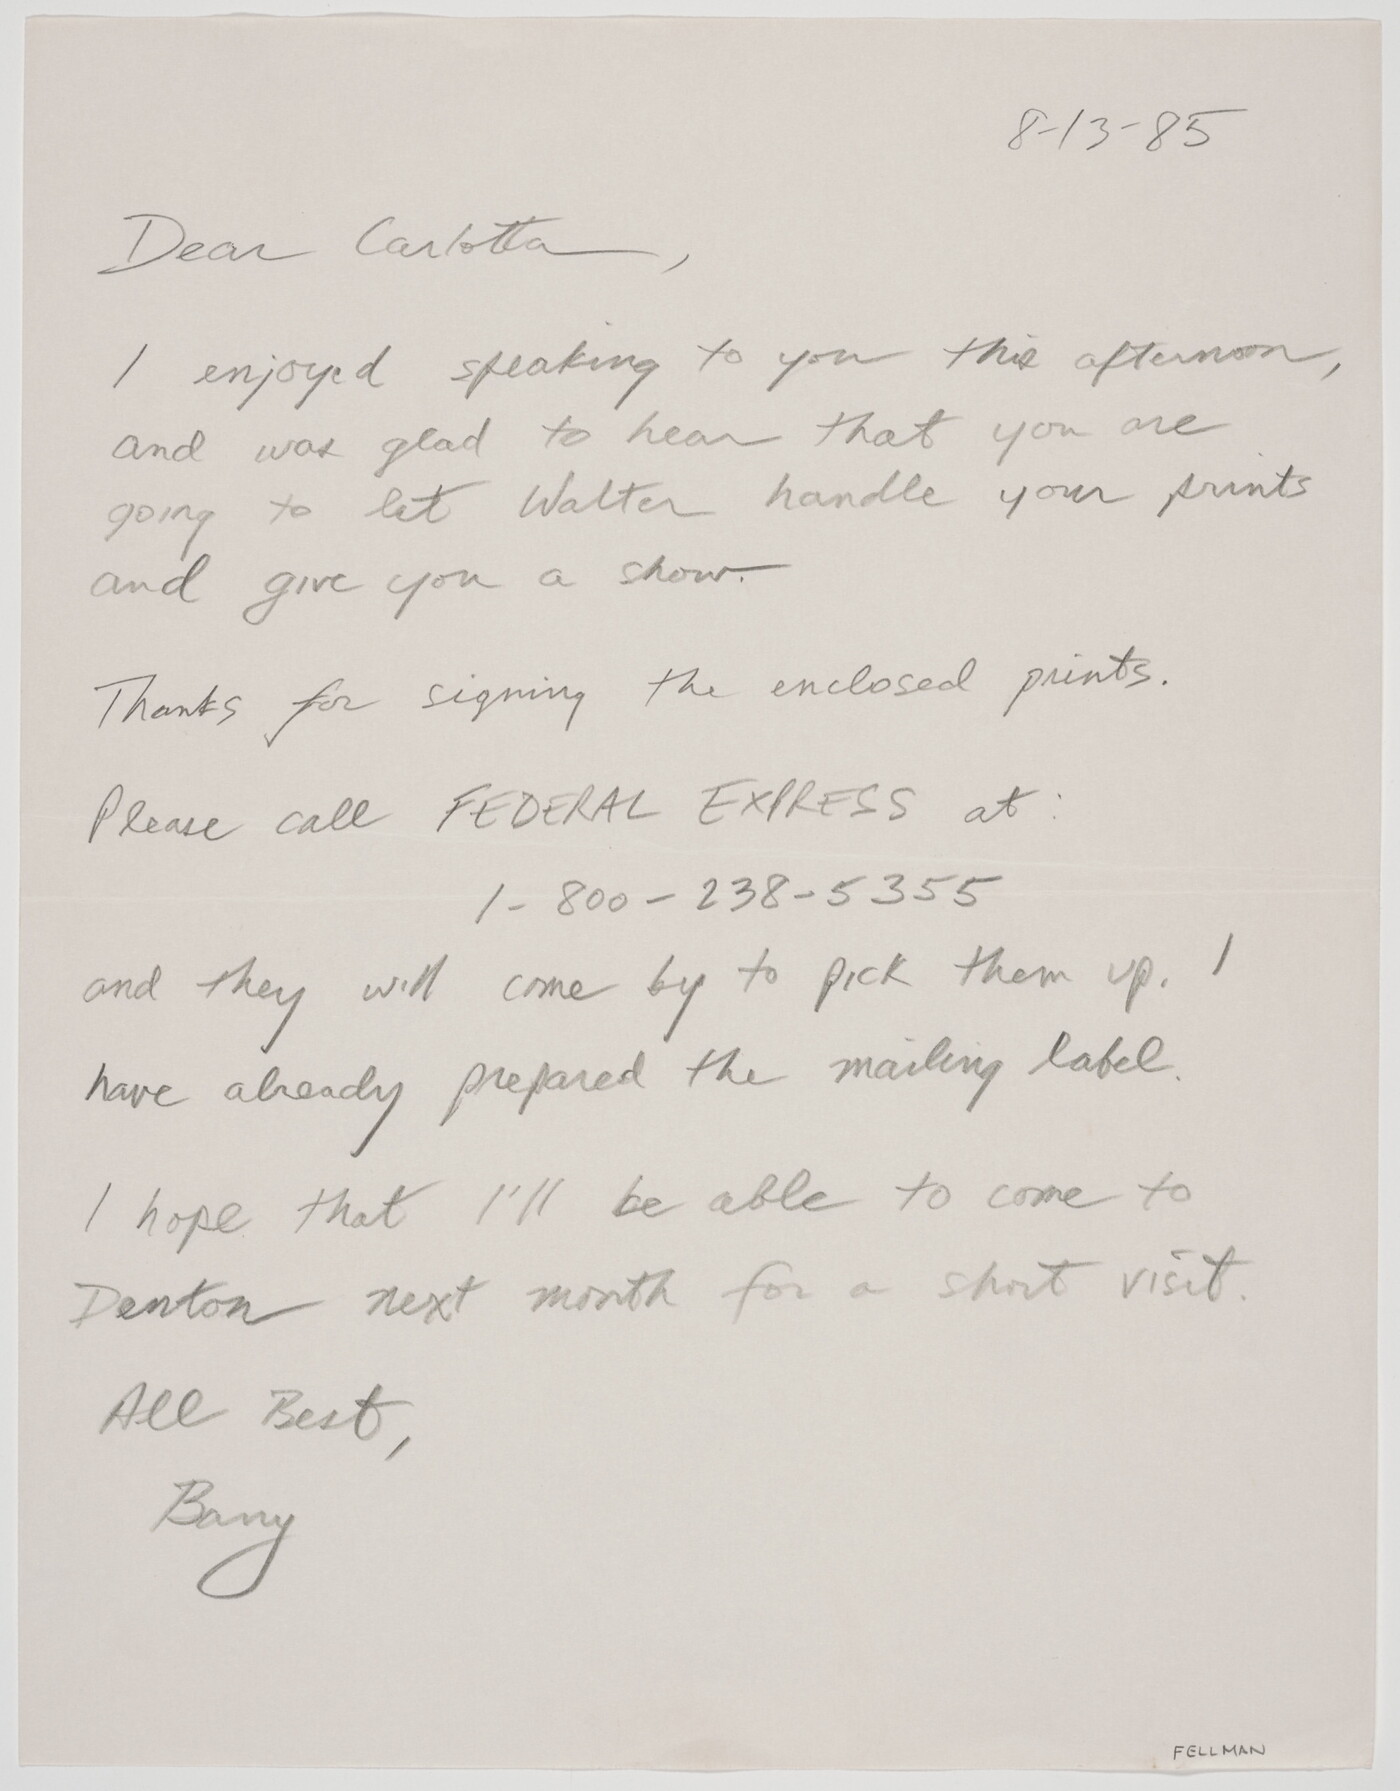 8-13-85
Dear Carlotta,
I enjoyed speaking to you this afternoon,
and was glad to hear that you are
going to let Walter handle your prints
and give you a show.
Thanks for signing the enclosed prints.
Please call FEDERAL EXPRESS at:
1-800-238-5355
and they will come by to pick them up. I
have already prepared the mailing label.
I hope that I'll be able to come to
Denton next month for a short visit.
All Best,
Barry
FELLMAN